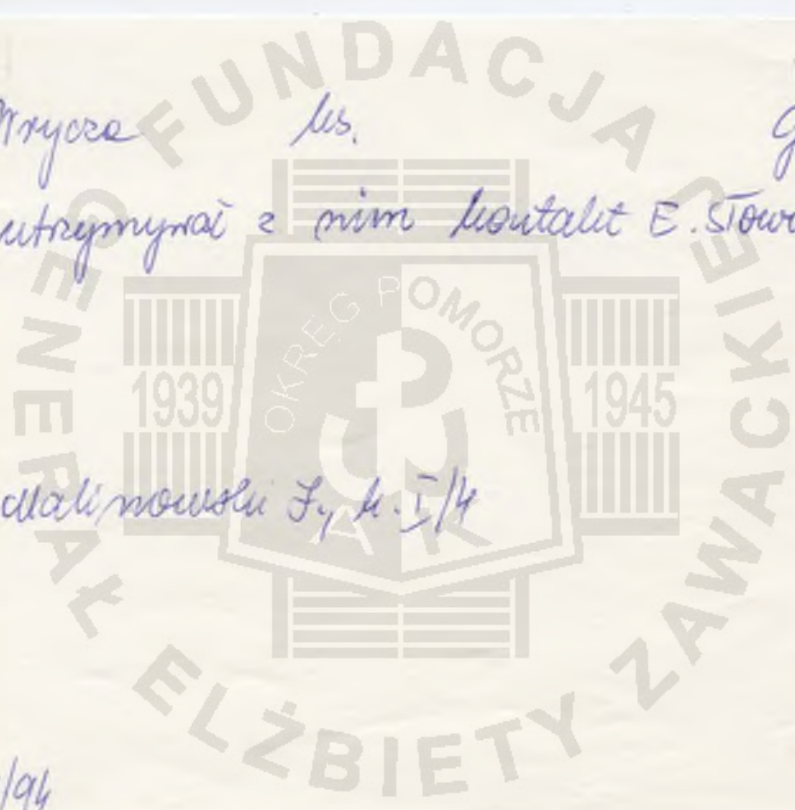 Wrycza ks. G
utrzymywał z nim kontakt E. Słowi
Malinowski J., k. I/4
/94
FUNDACJA
GENERAŁ ELŻBIETY ZAWACKIEJ
OKRĘG POMORZE
1939 1945
AK